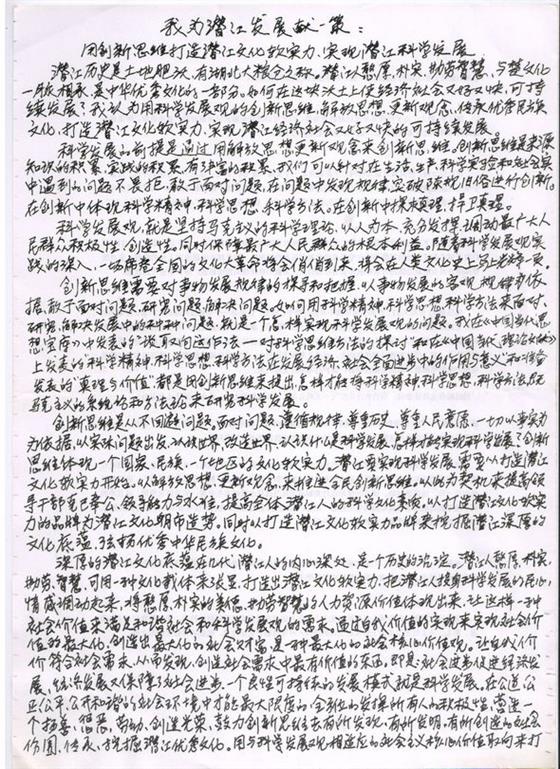 我为潜江发展献一策：
用创新思维打造潜江文化软实力、实现潜江科学发展
潜江历史是土地肥沃，有湖北大粮仓之称。潜江人憨厚、朴实、勤劳智慧，与楚文化
一脉相承，是中华优秀文化的一部分。如何在这块沃土上使经济社会又好又快，可持
续发展？我认为用科学发展观的创新思维，解放思想，更新观念，传承优秀民族
文化，打造潜江文化软实力，实现潜江经济社会又好又快的可持续发展。
科学发展的前提是通过用解放思想更新观念来创新思维。创新思维是来源
知识的积累，实践的积累，有丰富的积累，我们可以针对在生活、生产、科学实验和社会实践
中遇到的问题不畏拒，敢于面对问题，在问题中发现规律，突破陈规旧俗进行创新
在创新中体现科学精神，科学思想，科学方法。在创新中探求真理，捍卫真理。
科学发展观，就是坚持马克思主义的科学理论，以人为本，充分发挥、调动最广大人
民群众积极性，创造性。同时保障最广大人民群众的根本利益。随着科学发展观实
践的深入，一场席卷全国的文化大革命将会悄悄到来，将会在人类文化史上写上光辉一页
创新思维需要对事物发展规律的探寻和把握，以事物发展的客观规律为依
据，敢于面对问题，研究问题，解决问题，如何用科学精神，科学思想，科学方法来面对、
研究、解决发展中的种种问题，就是一个怎样实现科学发展观的问题。我在《中国当代思
想宝库》中发表的“谈取向运作法——对科学思维方法的探讨”和在《中国当代理论文献》
上发表的“科学精神，科学思想，科学方法在发展经济、社会全面进步中的作用与意义”和准备
发表的“真理与价值”都是用创新思维来提出，怎样才能将科学精神科学思想，科学方法，就
马克主义的系统论和方法论来研究科学发展。
创新思维是从不回避问题，面对问题，遵循规律，尊重历史，尊重人民意愿，一切以事实为
为依据，以实际问题出发，认识世界，改造世界，认识什么是科学发展，怎样才能实现科学发展？创新
思维体现一个国家、民族，一个地区的文化软实力。潜江要实现科学发展，需要从打造潜江
文化软实力开始。从解放思想，更新观念，来推进全民创新思维。以此为契机来提高领
导干部克己奉公，领导能力与水准，提高全体潜江人的科学文化素质，以打造潜江文化软实
力的品牌为潜江文化朝市造势。同时以打造潜江文化软实力品牌来挖掘潜江深厚的
文化底蕴，弘扬优秀中华民族文化。
深厚的潜江文化底蕴在代代潜江人的内心深处，是个历史的沉淀。潜江人憨厚，朴实，
勤劳，智慧，可用一种文化载体来张显，打造出潜江文化软实力，把潜江人投身科学发展的民心，
情感调动起来，将憨厚、朴实的美德，勤劳智慧的人力资源价值体现出来，让这样一种
社会价值来满足和谐社会和科学发展观的需求。通过自我价值的实现来实现社会价
值的最大化，创造出最大化的社会财富，是一种最大化的社会核心价值观。让自我价
价符合社会需求，从而发现，创造社会需求中最有价值的东西，即是：社会进步促进经济发
展，经济发展又保障了社会进步，一个良性可持续的发展模式就是科学发展，在公道公
正公平，公开和谐的社会环境中才能最大限度的，全部的发挥所有人的积极性，营造一
个扬善，惩恶，劳动，创造光荣，鼓励创新思维去有所发现，有所发明，有所创造的社会
氛围，传承、挖掘潜江优秀文化。用与科学发展观相适应的社会主义核心价值取向来打